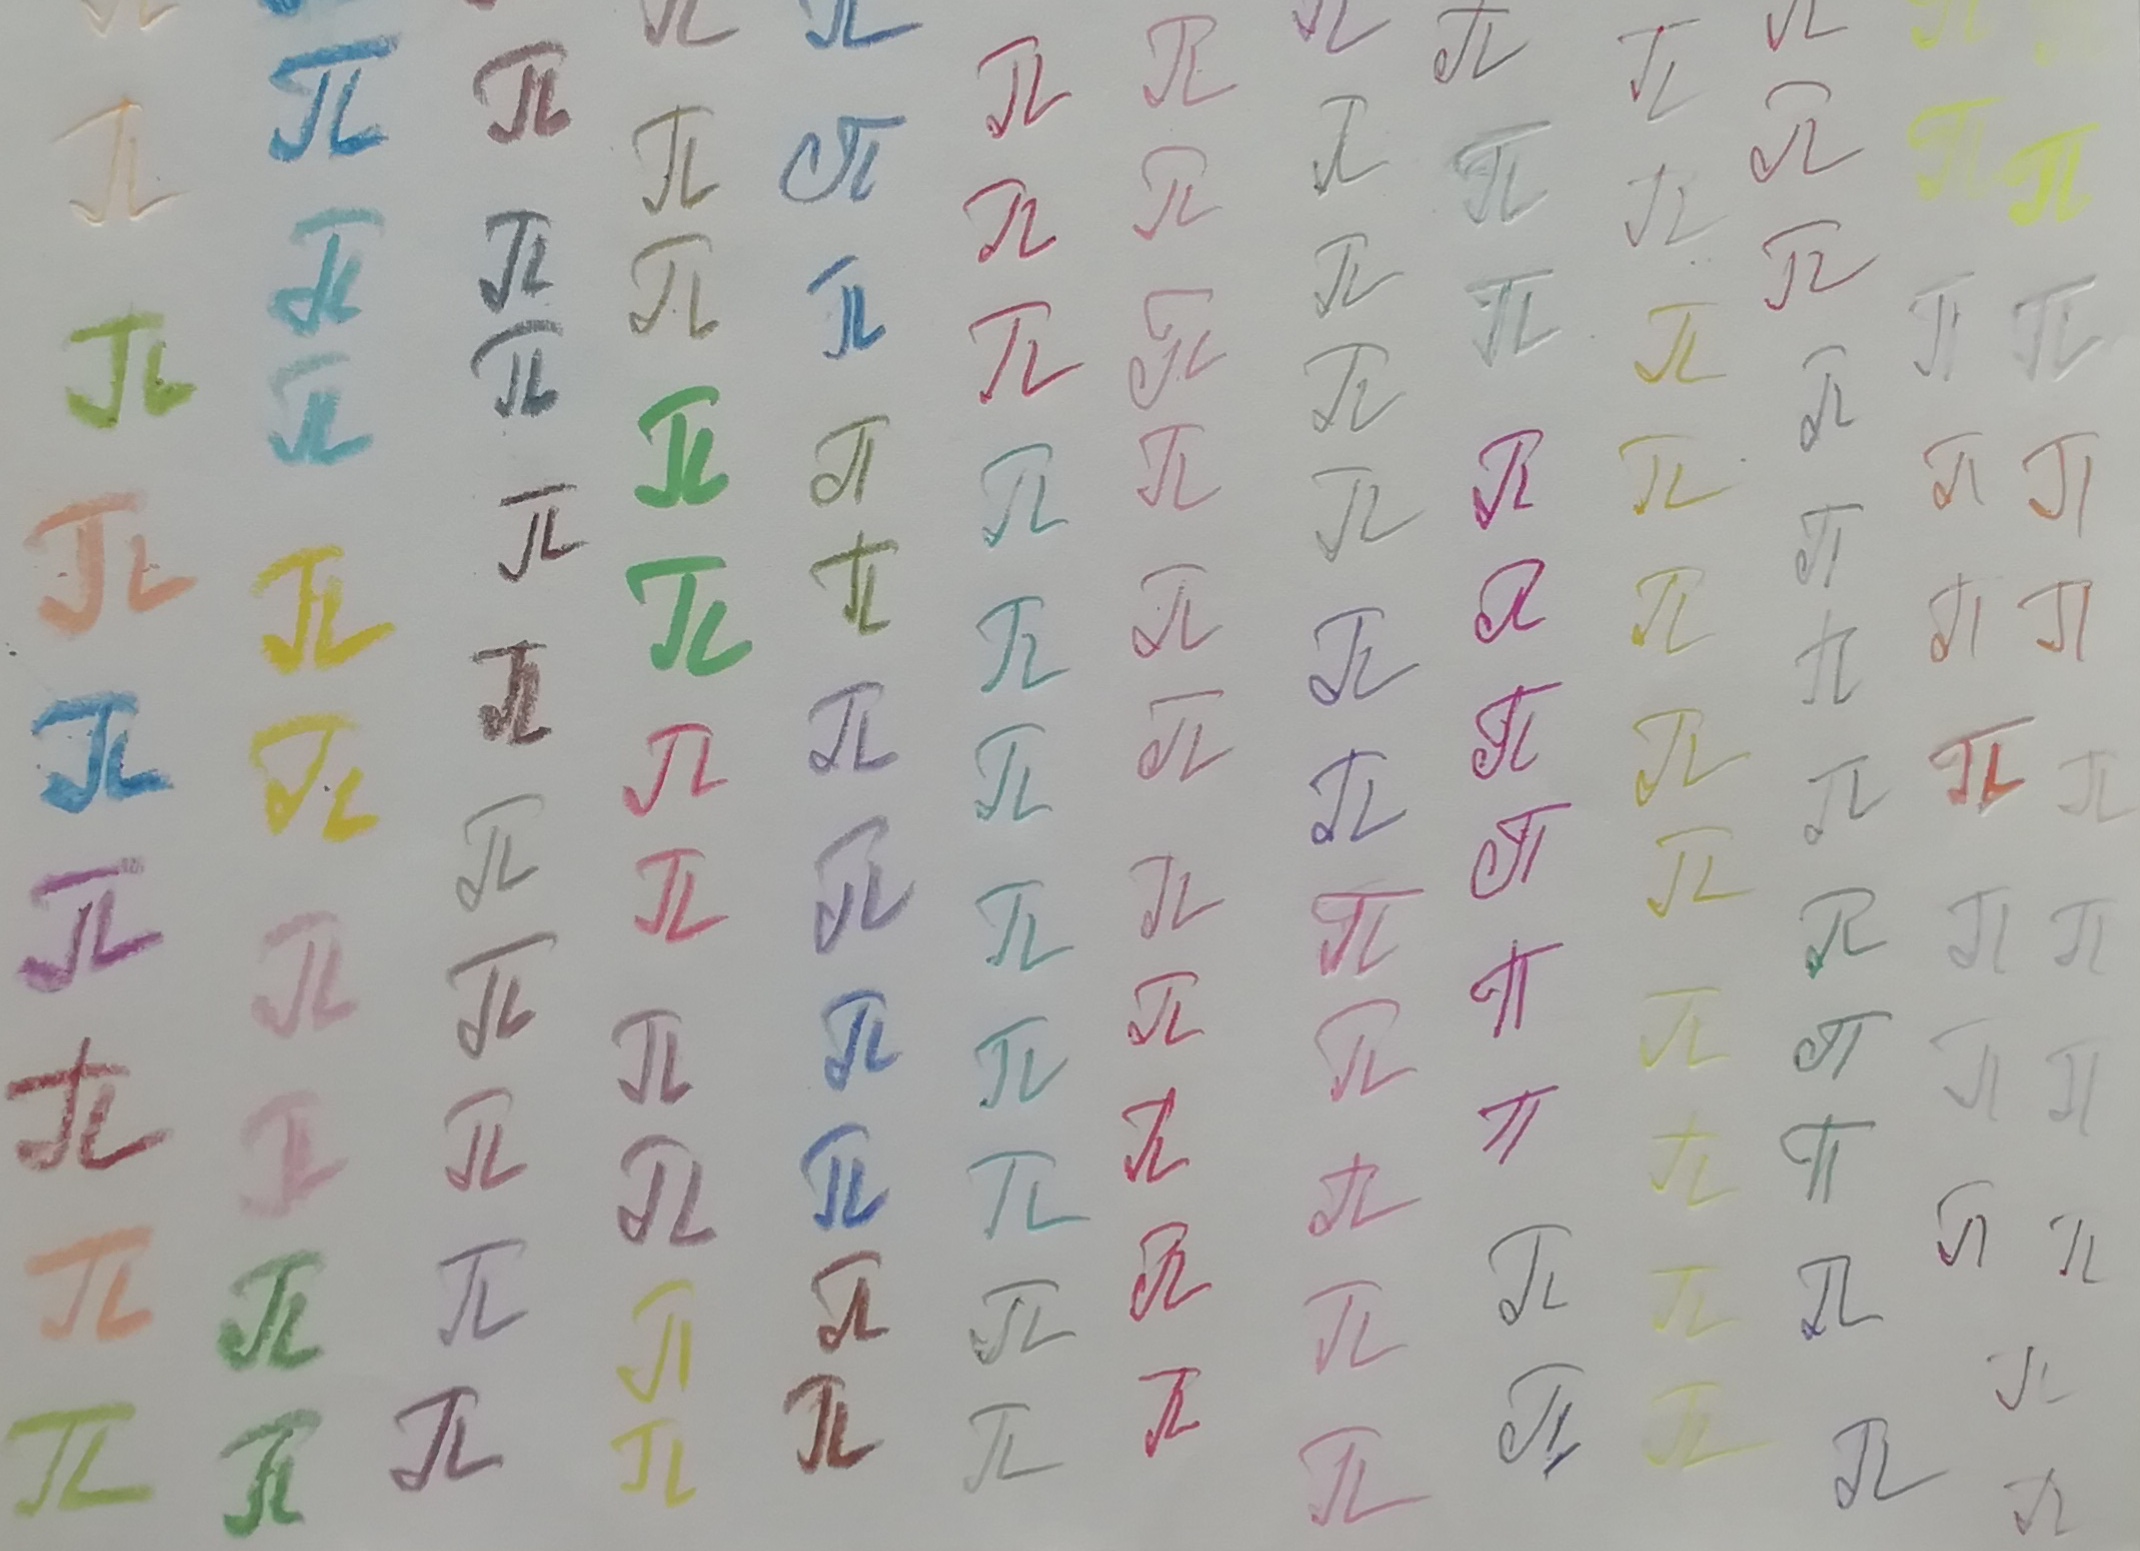 π π π π π π π π π π π π π
π π π π π π π π π π π π π
π π π π π π π π π π π π π
π π π π π π π π π π π π π
π π π π π π π π π π π π π
π π π π π π π π π π π π π
π π π π π π π π π π π π π
π π π π π π π π π π π π π
π π π π π π π π π π π π π
π π π π π π π π π π π
π π π π π π π π π π
π π